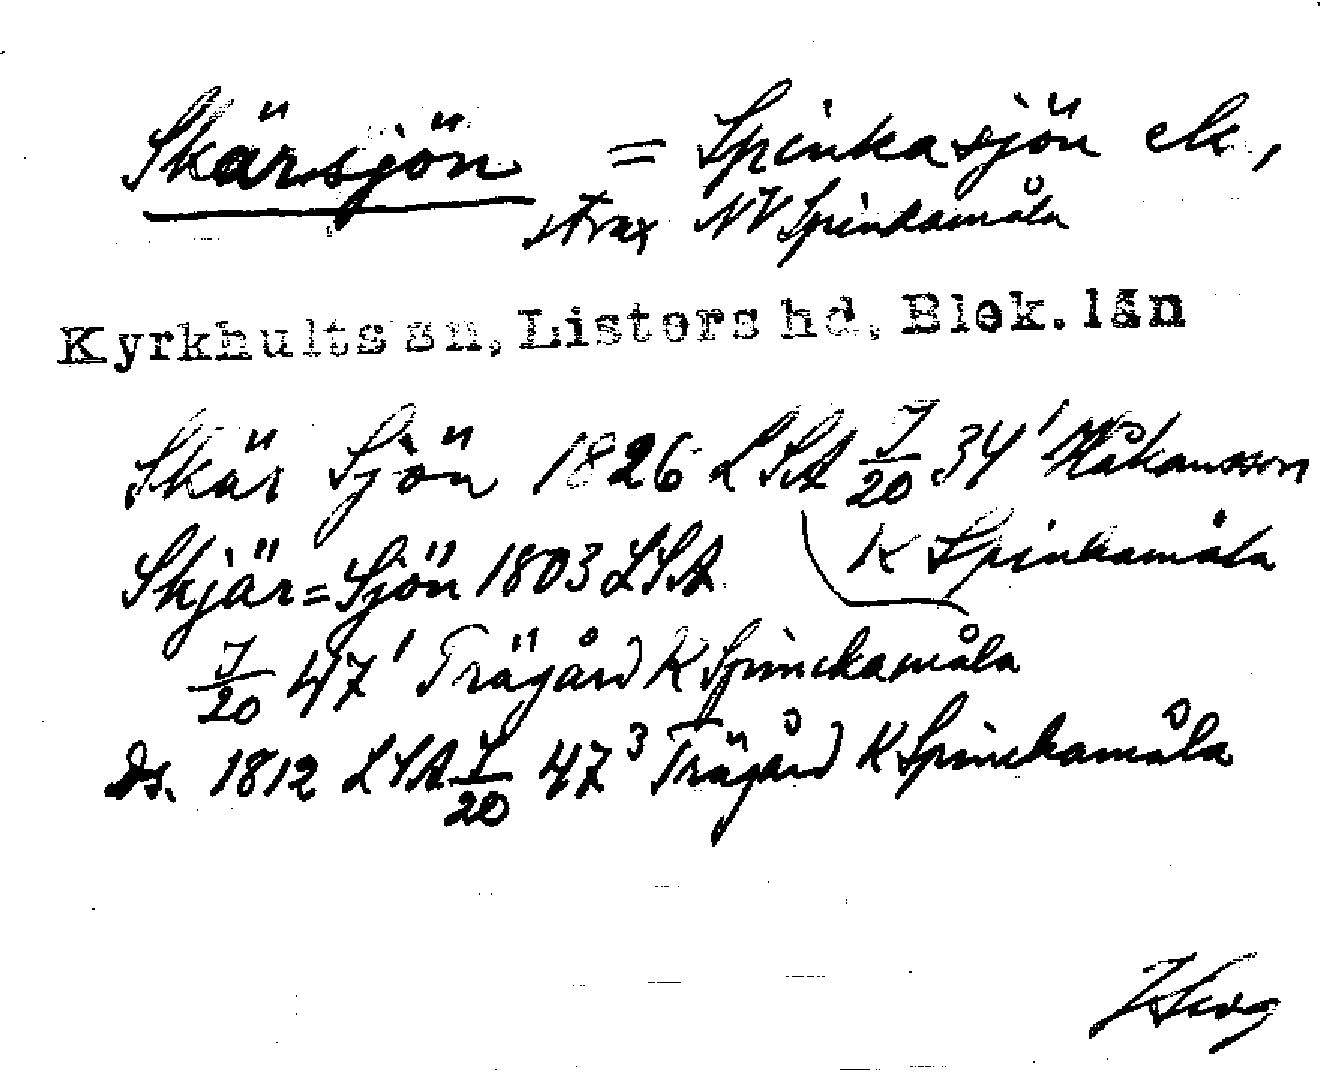 Skärsjön = Spinkasjön ek,
strax NV Spinkamåla
Kyrkhults sn, Listers hd, Blek. län
Skär Sjön 1826 LSA J/20 34¹ Håkansson
K Spinkamåla
Skjär=Sjön 1803 LSA
J/20 47¹ Trägård K Spinckamåla
Ds. 1812 LSA J/20 47³ Trägård K Spinckamåla